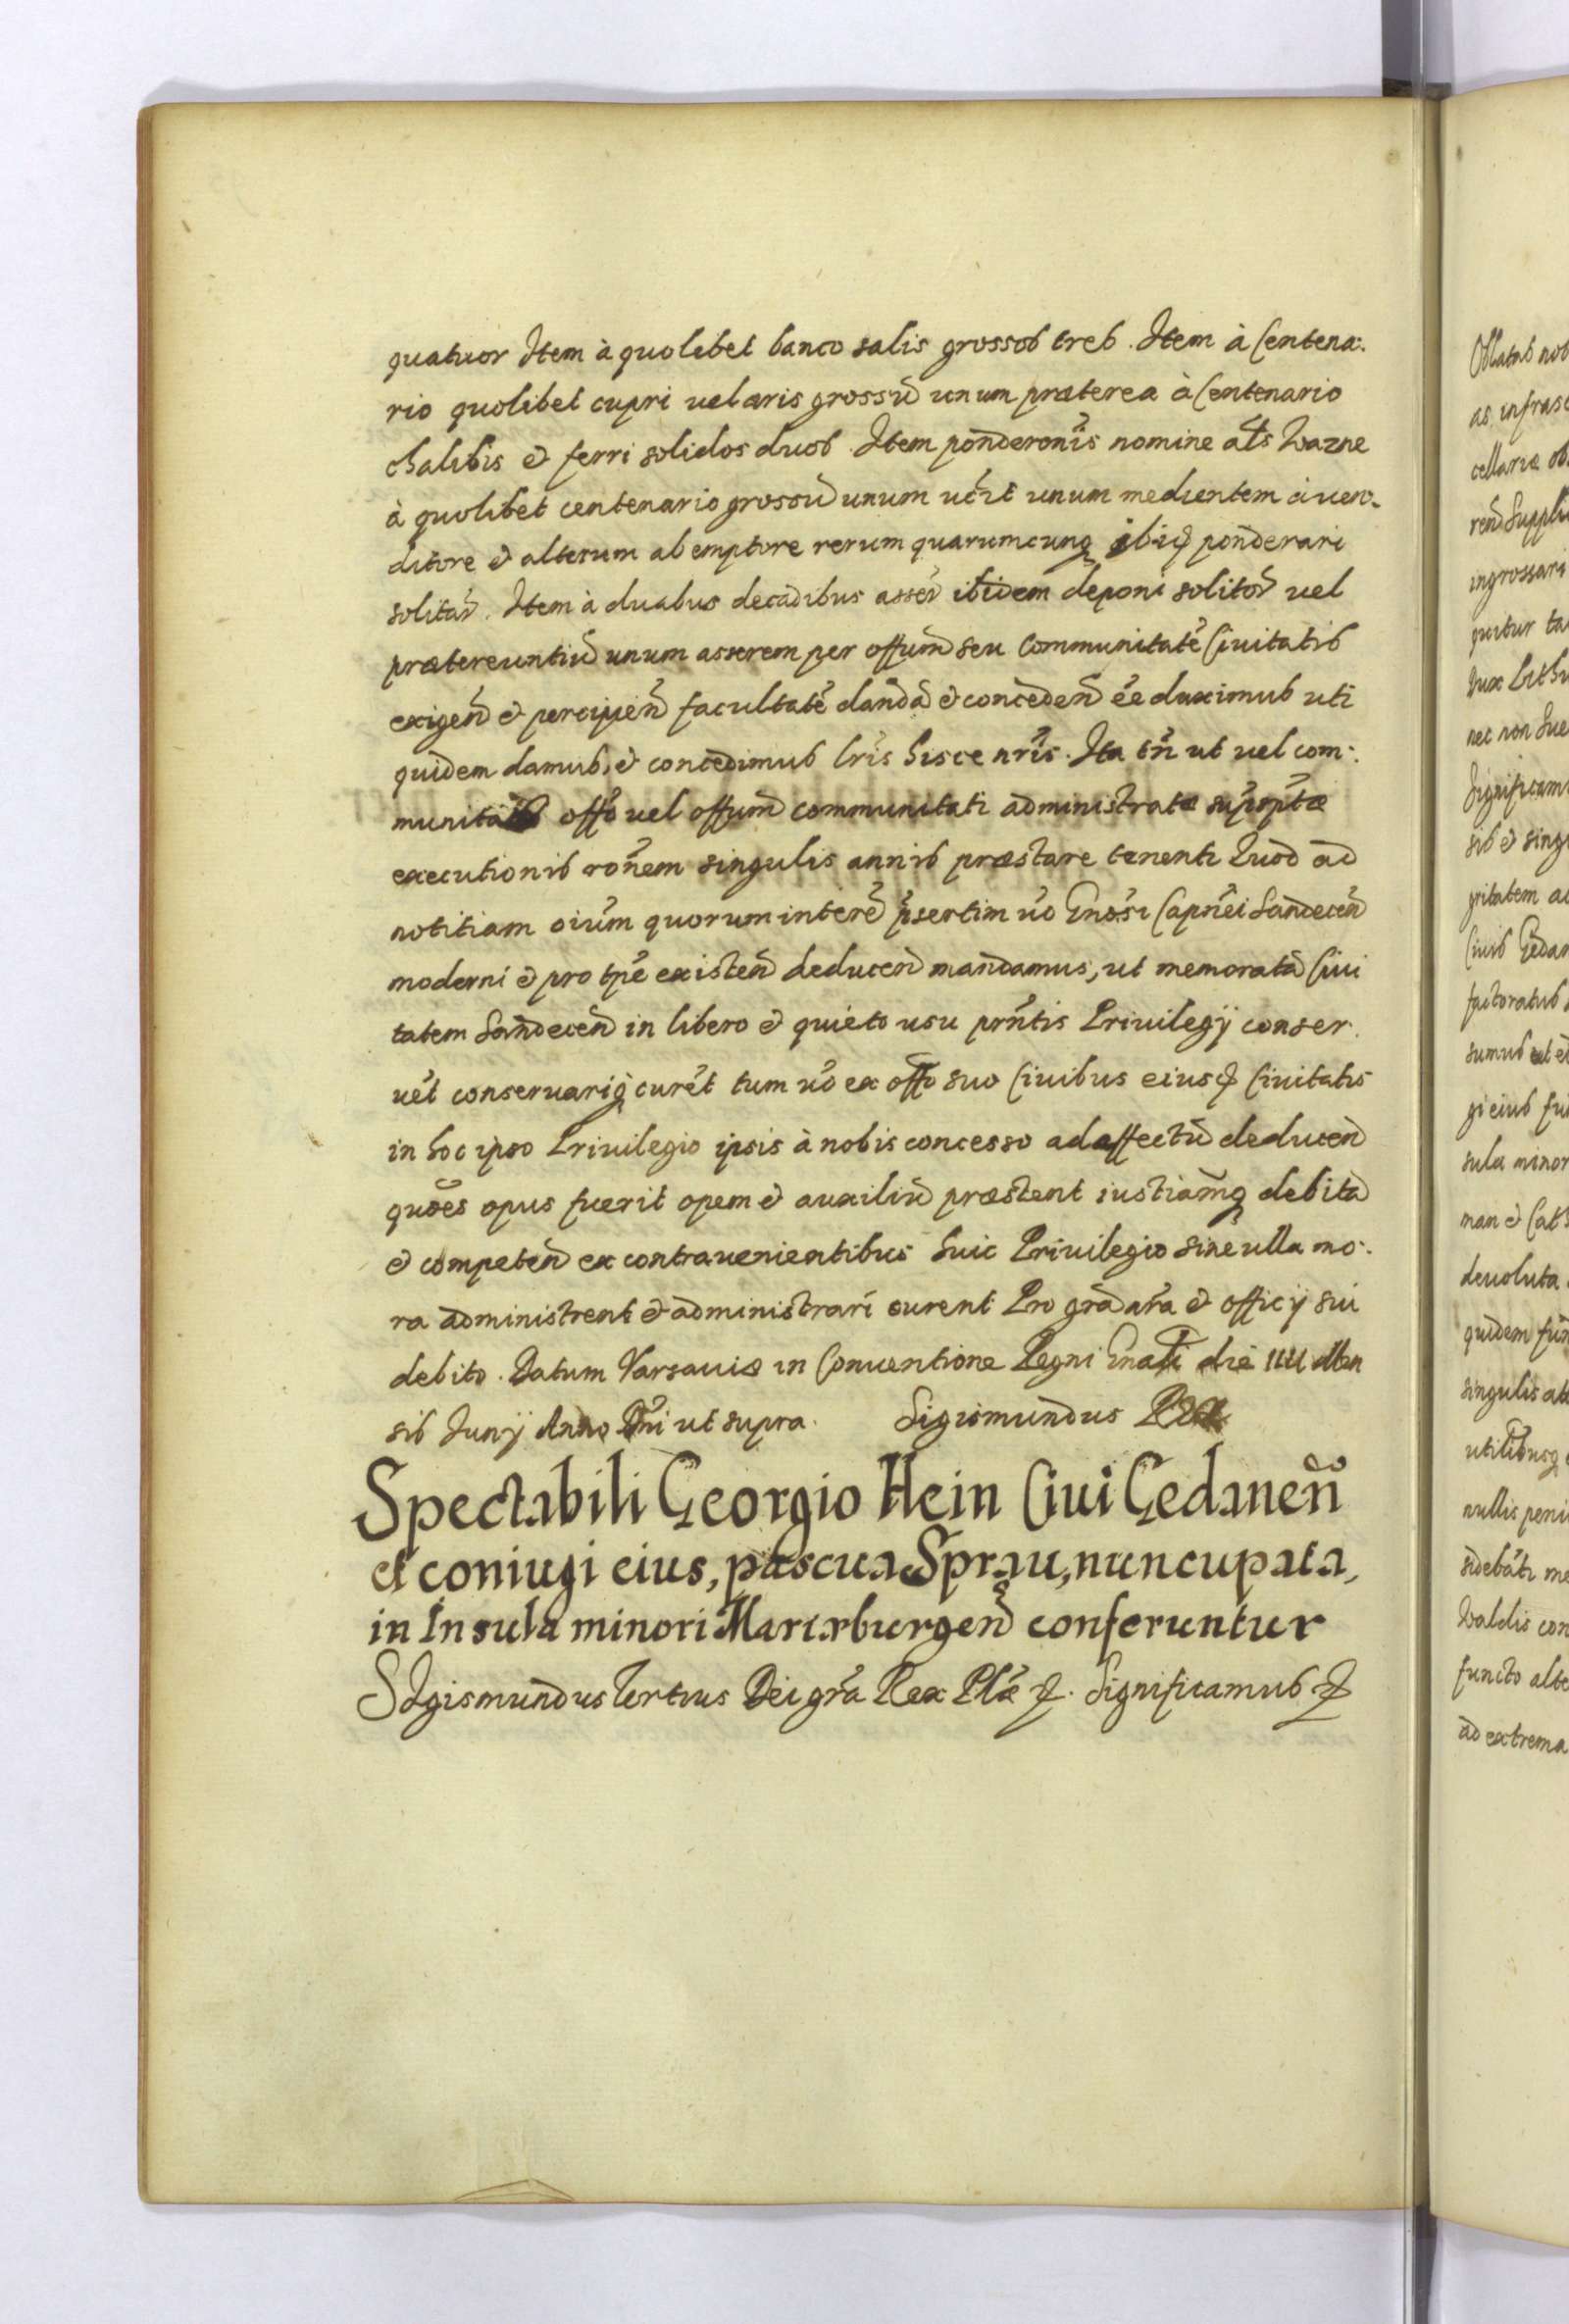 quatuor Item à quolibet banco salis grossos tres. Item à Centena:
rio quolibet cupri uel æris grossũ unum præterea à Centenario
chalibis et ferri solidos duos. Item ponderoñis nomine als Wazne
à quolibet centenario grossũ unum unum medientem à uen:
ditore et alterum ab emptore rerum quarumcunq ibi ponderari
solitar̃. Item à duabus decadibus asser̃ ibidem deponi solitor̃ uel
prætereuntiũ unum asserem per offum̃ seu Communitatẽ Ciuitatis
exigeñ et percipieñ facultatẽ dandã et concedeñ ẽe duximus uti
quidem damus, et concedimus lr̃is hisce nr̃is. Ita tñ ut uel com:
offo uel offum̃ communitati administratæ
executionis roñem singulis annis præstare tenenti Quod ad
notitiam oium̃ quorum interẽ p̃sertim uõ Gnosi Capnei Sandeceñ
moderni et pro tpẽ existeñ deduceñ mandamus, ut memoratã Ciui
tatem Sandeceñ in libero et quieto usu pr̃ntis Priuilegÿ conser:
uẽt conseruariq curẽt tum uõ ex offo suo Ciuibus eiusd Ciuitatis
in hoc ipso Priuilegio ipsis à nobis concesso ad affectũ deduceñ
quoẽs opus fuerit opem et auxiliũ præstent iustiam̃q debitã
et competeñ ex contrauenientibus huic Priuilegio sine ulla mo:
ra administrent et administrari curent Pro gr̃a nr̃a et officÿ sui
debito. Datum Varsauiæ in Conuentione Regni Gnali die IIII Men
sis Junÿ Anno Dñi ut supra. Sigismundus Rex
Spectabili Georgio Hein Ciui Gedaneñ
et coniugi eius, pascua Sprau, nuncupata,
in Insula minori Mariæburgeñ conferuntur
SIgismundus Tertius Dei gr̃a Rex Plæ &. Significamus &
Oblatas nob
as infrasc
cellariæ ob
reñ Suppli
ingrossari
quitur ta
Dux Lithu
nec non Sue
Significam
sis et singu
gritatem ac
Ciuis Gedan
factoratus
sumus ut et
gi eius fui
sula minor
man et Cath
deuoluta
quidem fun
singulis ab
utilibusq
nullis peni
sidebati me
Waldis con
functo alte
ad extrema